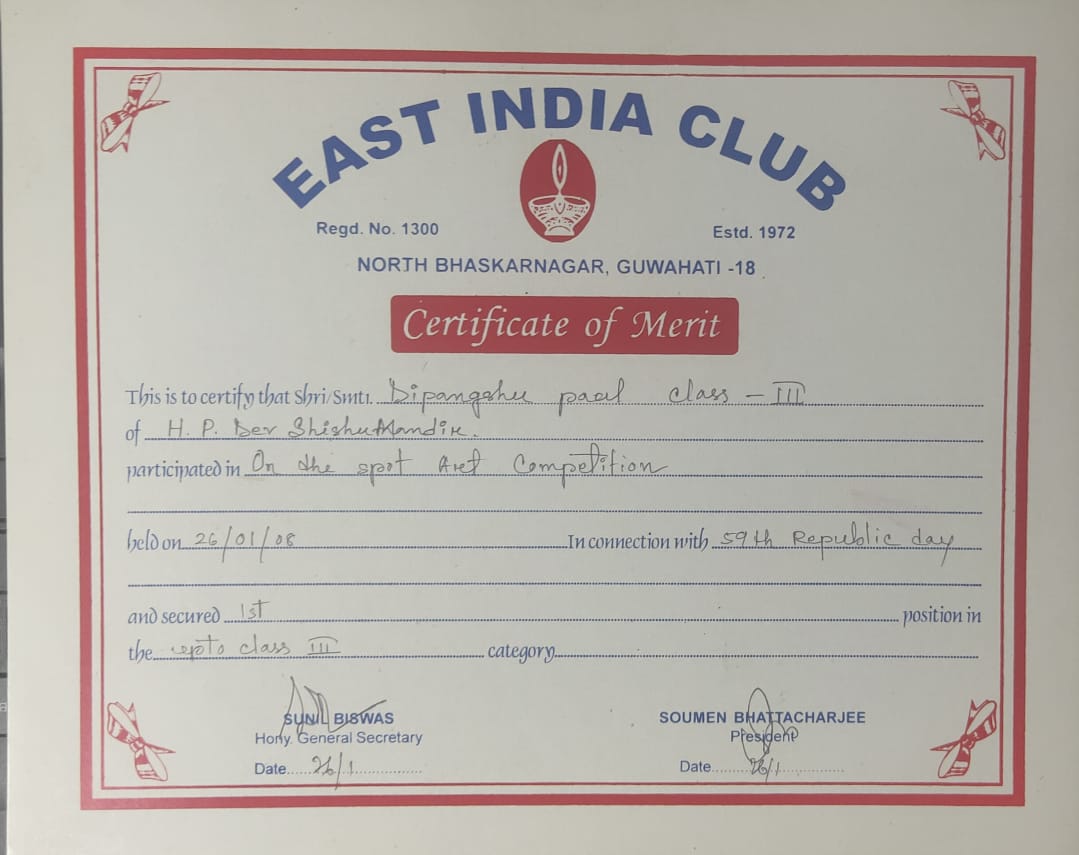 EAST INDIA CLUB
Regd. No. 1300 Estd. 1972
NORTH BHASKARNAGAR, GUWAHATI -18
Certificate of Merit
This is to certify that Shri/Smti. Dipangshu paul class - III
of H. P. Dev ShishuMandir.
participated in On the spot Art Competition
held on 26/01/08 In connection with 59th Republic day
and secured 1st position in
the upto class III category
SUNIL BISWAS SOUMEN BHATTACHARJEE
Hony. General Secretary President
Date 26/1 Date 26/1